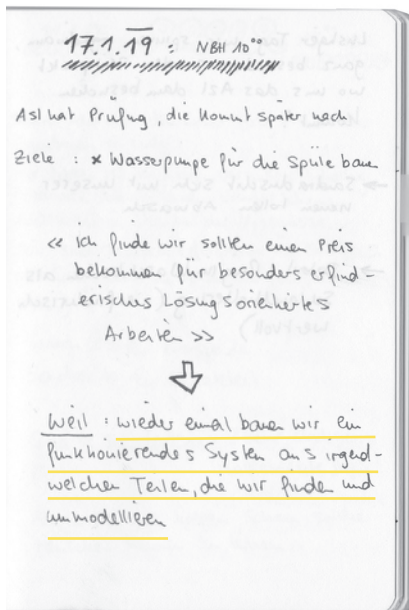 17.1.19 : NBH 10⁰⁰
Asl hat Prüfung, die kommt später nach
Ziele : × Wasserpumpe für die Spüle bauen
« Ich finde wir sollten einen Preis
bekommen für besonders erfind-
erisches Lösungsorientiertes
Arbeiten »
Weil : wieder einmal bauen wir ein
funktionierendes System aus irgend-
welchen Teilen, die wir finden und
ummodellieren